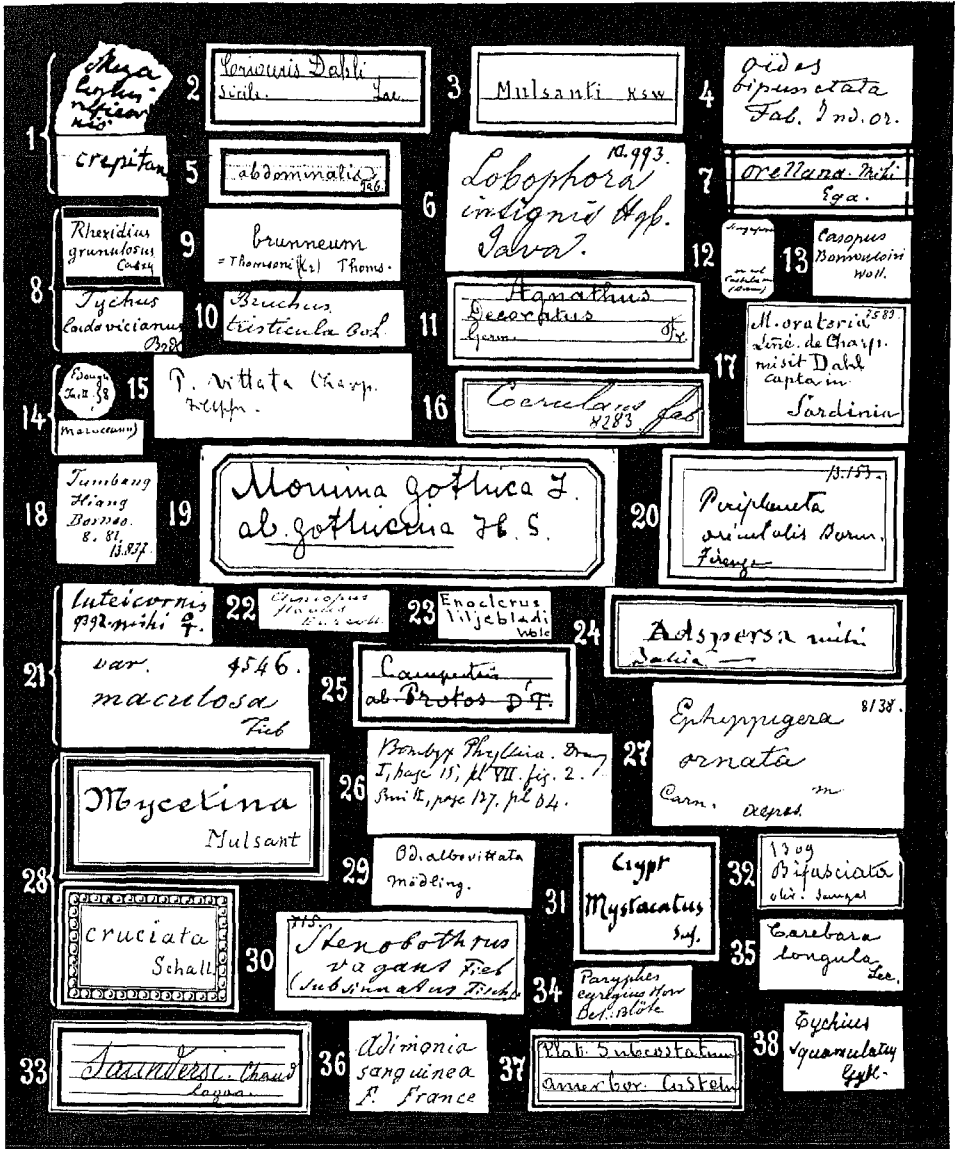 1
crepitan
2
Dahli
Sicile.
3
Mulsanti Ksw
4
Oides
bipunctata
Fab. Ind. or.
5
abdominalis
Fab.
6
Lobophora
insignis Hgb.
Java.
7
orellana. mihi
Ega.
8
Rhexidius
grunulosus
Casey
Tychus
Ludovicianus
9
brunneum
= Thomsoni (Kr) Thoms.
10
Bruchus
tristicula
11
Agnathus
Decoratus
Germ.
12
13
Casopus
Woll.
14
15
T. Vittata Charp.
16
Coerulans fab
283
17
2583.
M. oratoria
Liné. de Charp.
misit Dahl
captam
Sardinia
18
Tumbang
Hiang
Borneo.
8. 81.
19
Monima gothica L.
ab. gothicina H. S.
20
13.153.
Periplaneta
orientalis Burm.
Firenze
21
luteicornis
mihi
var. 4546.
maculosa
Fieb
22
23
Enoclerus
liljebladi
Wolc
24
Adspersa mihi
Bahia —
25
Campestris
ab. Protos D.T.
26
Bombyx Phyllira. Drury
I, page 15, pl VII. fig. 2.
page 127. pl
27
8138.
Ephippigera
ornata
28
Mycetina
Mulsant
cruciata
Schall.
29
Od. albovittata
mödling.
30
715.
Stenobothrus
vagans Fieb
(subsinuatus Fisch)
31
Crypt
Mystacatus
Suf.
32
1309
Bifasciata
oliv.
33
Saundersi. Chaud
34
Paryphes
egregius
Det. Blöte
35
Carebara
longula
Lec.
36
Adimonia
sanguinea
F. France
37
Plat. Subcostatum
amer bor. Casteln
38
Tychius
squamulatus
Gyll.